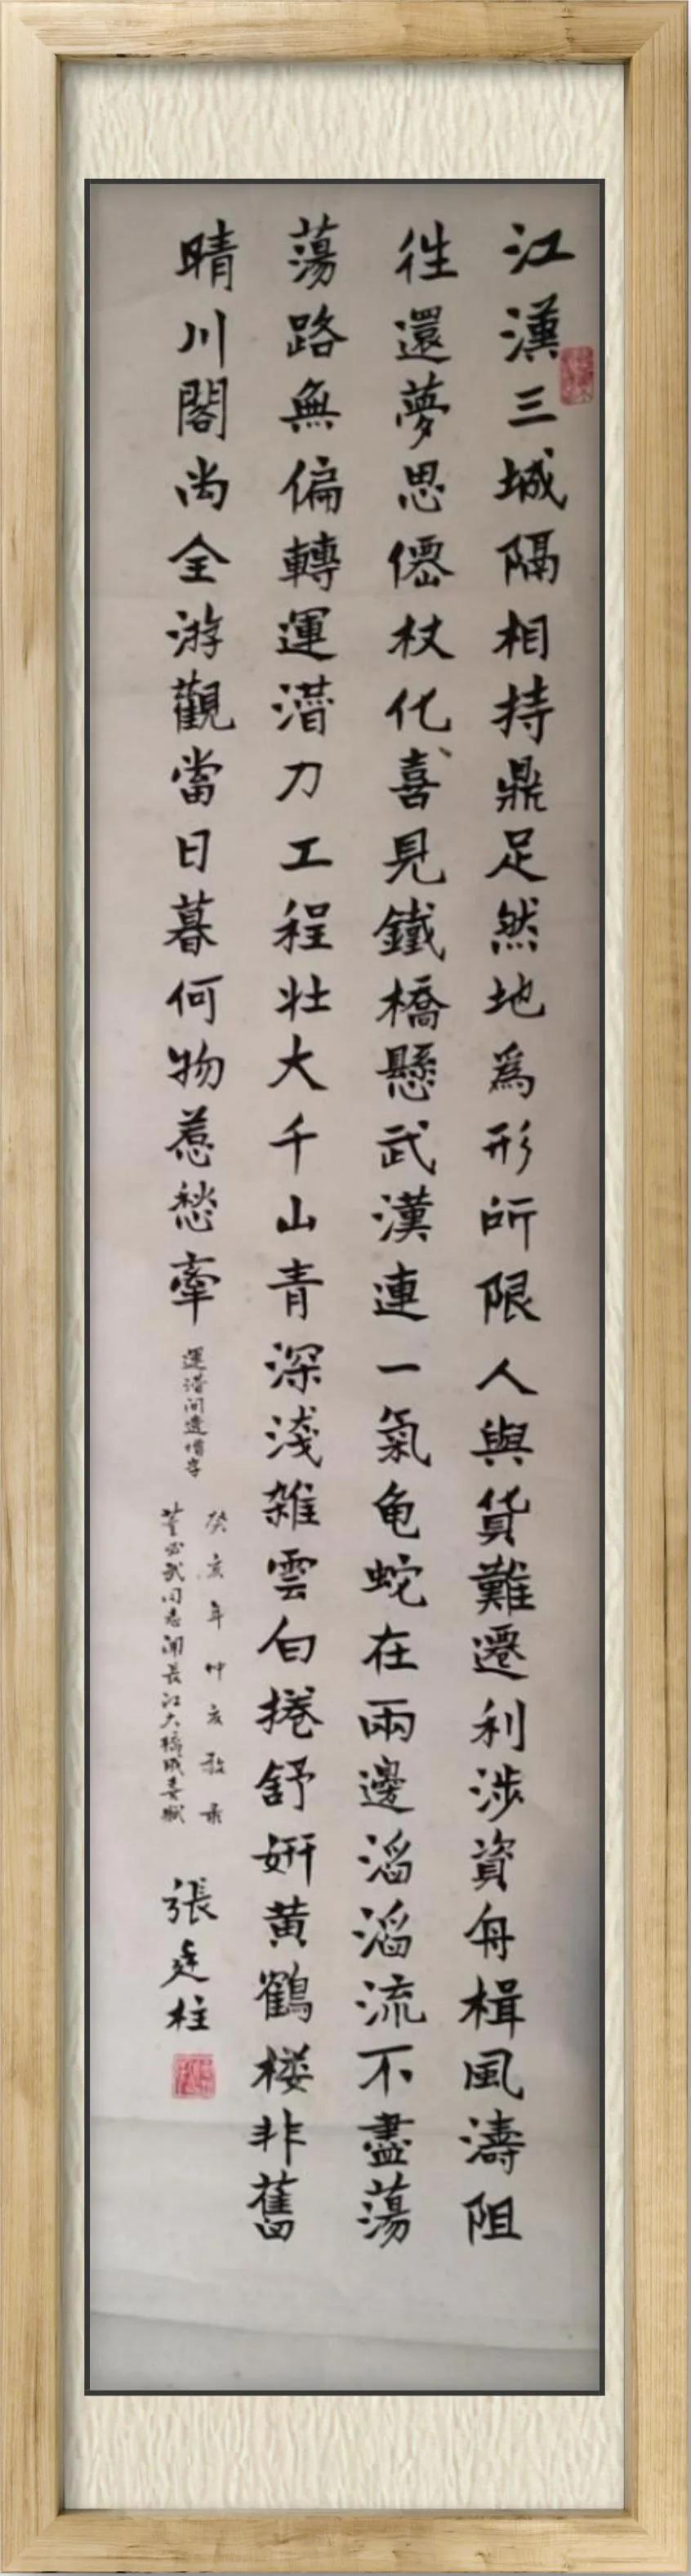 江漢三城隔相持鼎足然地為形所限人與貨難遷利涉資舟楫風濤阻
往還夢思僊杖化喜見鐵橋懸武漢連一氣龟蛇在兩邊滔滔流不盡蕩
蕩路無偏轉運潛力工程壯大千山青深淺雜雲白捲舒妍黄鶴楼非舊
晴川閣尚全游觀當日暮何物惹愁牽
運潛间遺增字
癸亥年仲亥敬录
董必武同志闻長江大橋成喜赋
張廷柱